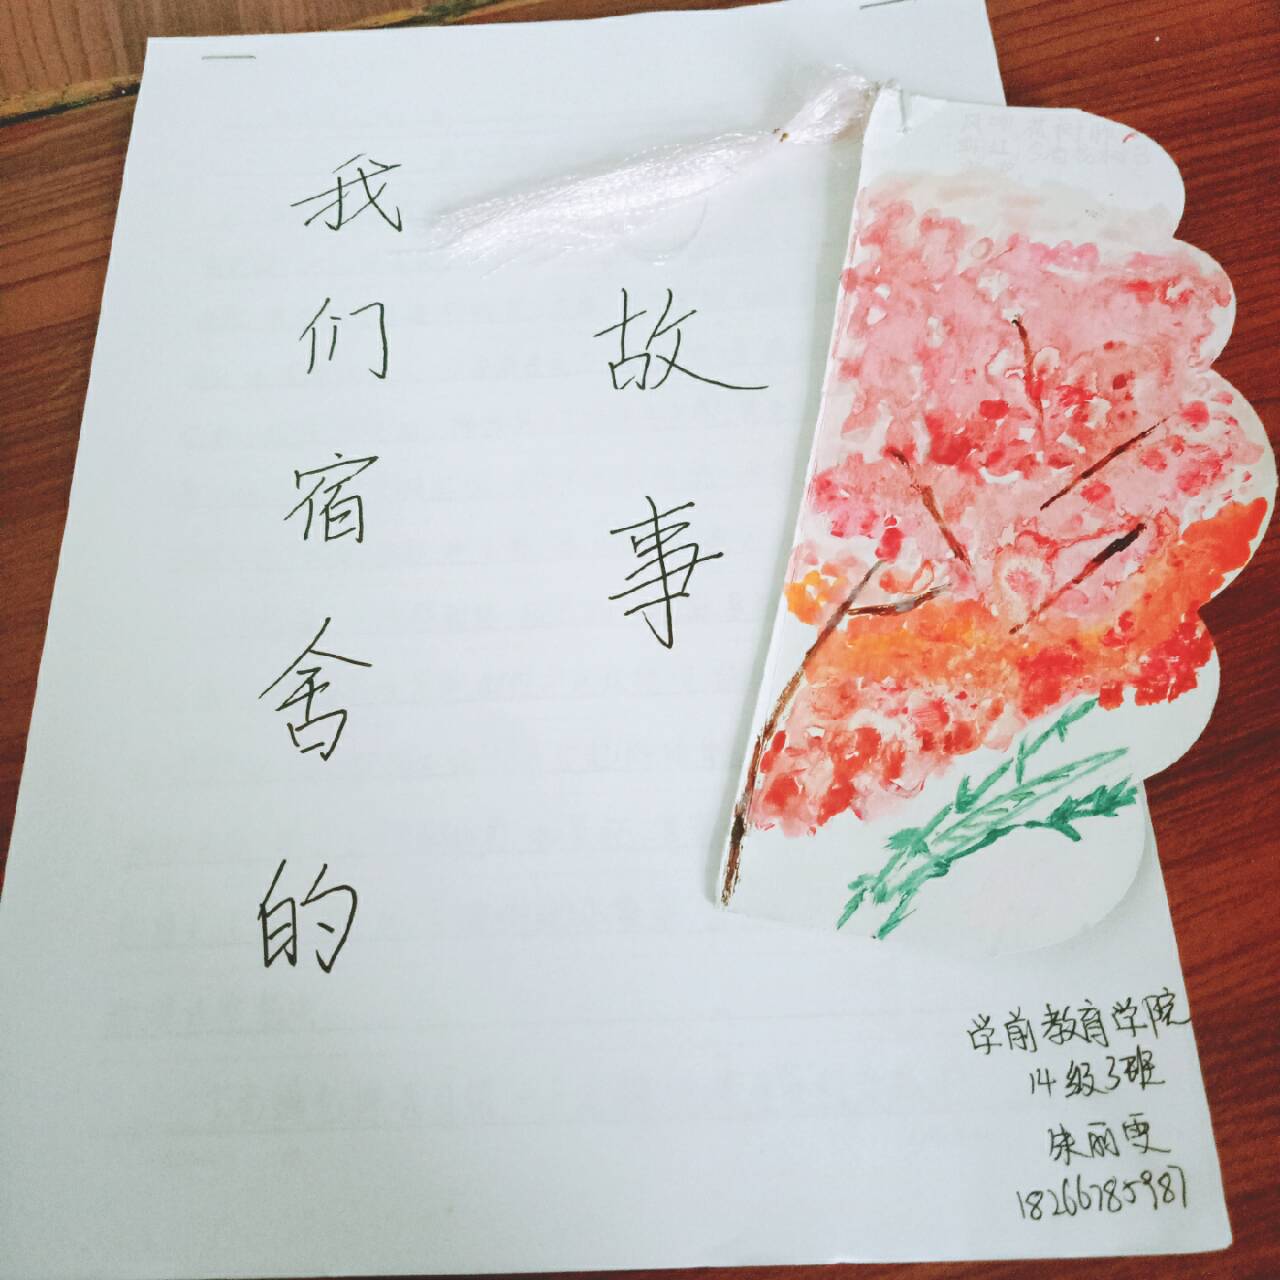 我们宿舍的
故事
学前教育学院
14级3班
朱丽雯
18266785987